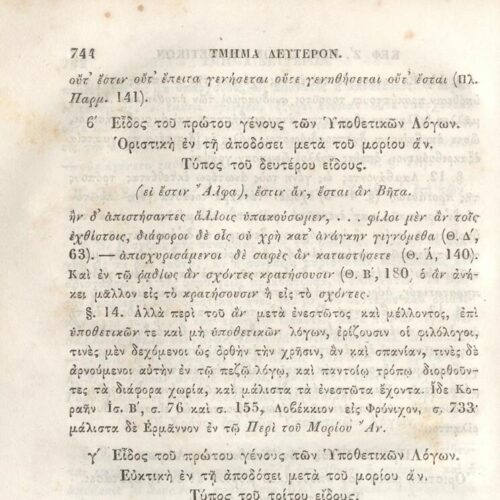 744 ΤΜΗΜΑ ΔΕΥΤΕΡΟΝ.
οὔτ' ἔστιν οὔτ' ἔπειτα γενήσεται οὔτε γενηθήσεται οὔτ' ἔσται (Πλ.
Παρμ. 141).
ϐ' Εἶδος τοῦ πρώτου γένους τῶν Ὑποθετικῶν Λόγων.
Ὁριστικὴ ἐν τῇ ἀποδόσει μετὰ τοῦ μορίου ἄν.
Τύπος τοῦ δευτέρου εἴδους.
(εἰ ἔστιν Ἄλφα), ἔστιν ἄν, ἔσται ἂν Βῆτα.
ἢν δ' ἀπιστήσαντες ἄλλοις ὑπακούσωμεν, . . . φίλοι μὲν ἂν τοῖς
ἐχθίστοις, διάφοροι δὲ οἷς οὐ χρὴ κατ' ἀνάγκην γιγνόμεθα (Θ. Δ',
63). — ἀπισχυρισάμενοι δὲ σαφὲς ἂν καταστήσετε (Θ. Ά, 140).
Καὶ ἐν τῷ ῥᾳδίως ἂν σχόντες κρατήσουσιν (Θ. Β', 180) ὁ ἂν ἀνή-
κει μᾶλλον εἰς τὸ κρατήσουσιν ἢ εἰς τὸ σχόντες.
§. 14. Ἀλλὰ περὶ τοῦ ἂν μετὰ ἐνεστῶτος καὶ μέλλοντος, ἐπὶ
ὑποθετικῶν τε καὶ μὴ ὑποθετικῶν λόγων, ἐρίζουσιν οἱ φιλόλογοι,
τινὲς μὲν δεχόμενοι ὡς ὀρθὴν τὴν χρῆσιν, ἂν καὶ σπανίαν, τινὲς δὲ
ἀρνούμενοι αὐτὴν ἐν τῷ πεζῷ λόγῳ, καὶ παντοίῳ τρόπῳ διορθοῦν-
τες τὰ διάφορα χωρία, καὶ μάλιστα τὰ ἐνεστῶτα ἔχοντα. Ἴδε Κο-
ραῆν Ἰσ. Β', σ. 76 καὶ σ. 155, Λοβέκκιον εἰς Φρύνιχον, σ. 733·
μάλιστα δὲ Ἕρμαννον ἐν τῷ Περὶ τοῦ Μορίου Ἄν.
γ' Εἶδος τοῦ πρώτου γένους τῶν Ὑποθετικῶν Λόγων.
Εὐκτικὴ ἐν τῇ ἀποδόσει μετὰ τοῦ μορίου ἄν.
Τύπος τοῦ τρίτου εἴδους.